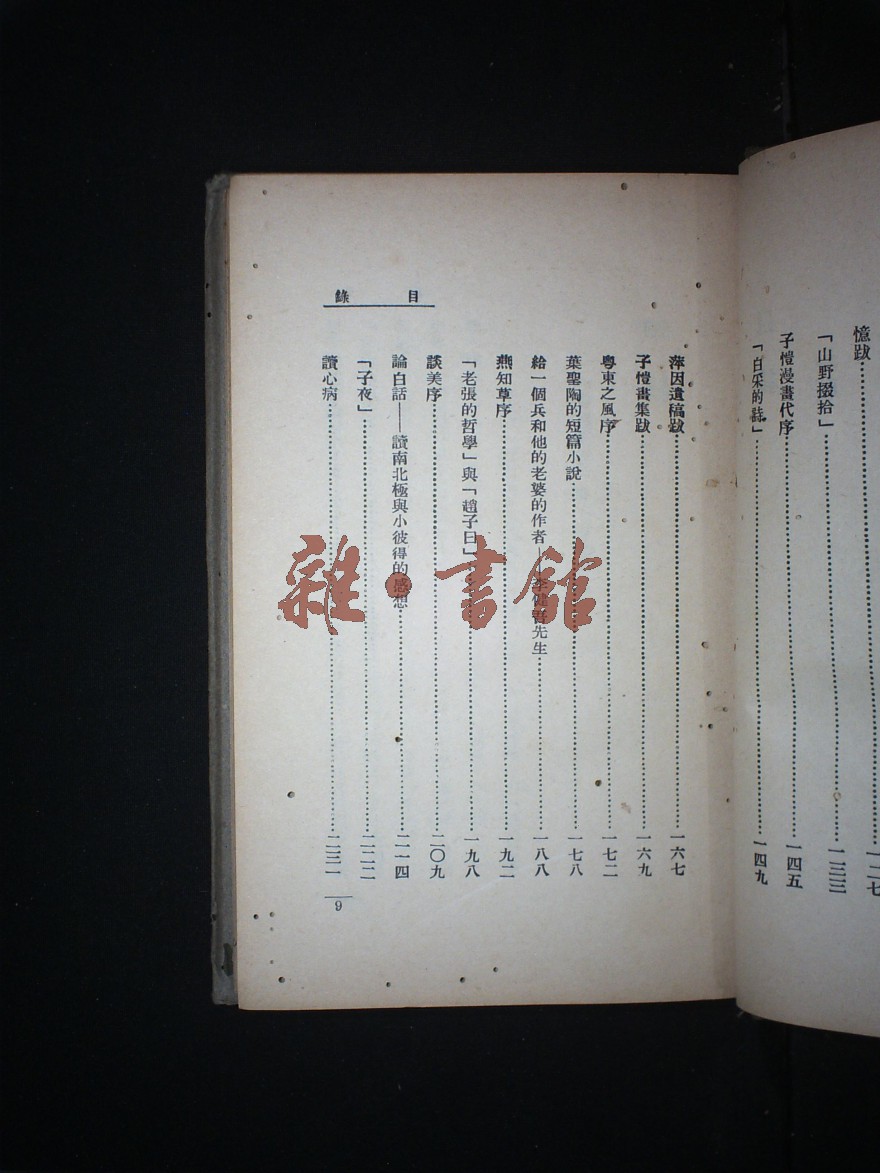 憶跋……一二七
「山野掇拾」……一三三
子愷漫畫代序……一四五
「白采的詩」……一四九
目錄
萍因遺稿跋……一六七
子愷畫集跋……一六九
粵東之風序……一七二
葉聖陶的短篇小說……一七八
給一個兵和他的老婆的作者——李健吾先生……一八八
燕知草序……一九二
「老張的哲學」與「趙子曰」……一九八
談美序……二〇九
論白話——讀南北極與小彼得的感想……二一四
「子夜」……二二二
讀心病……二三一
9
雜·書館